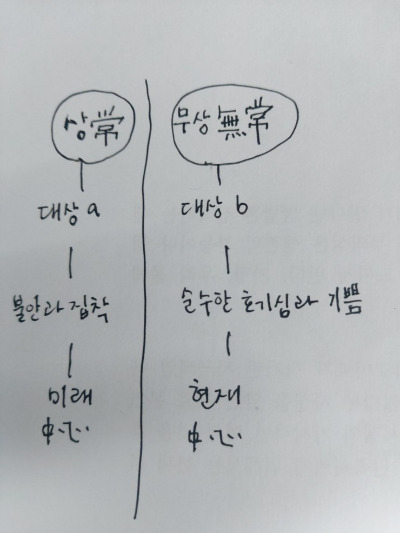 상常
대상 a
불안과 집착
미래
中心
무상 無常
대상 b
순수한 호기심과 기쁨
현재
中心